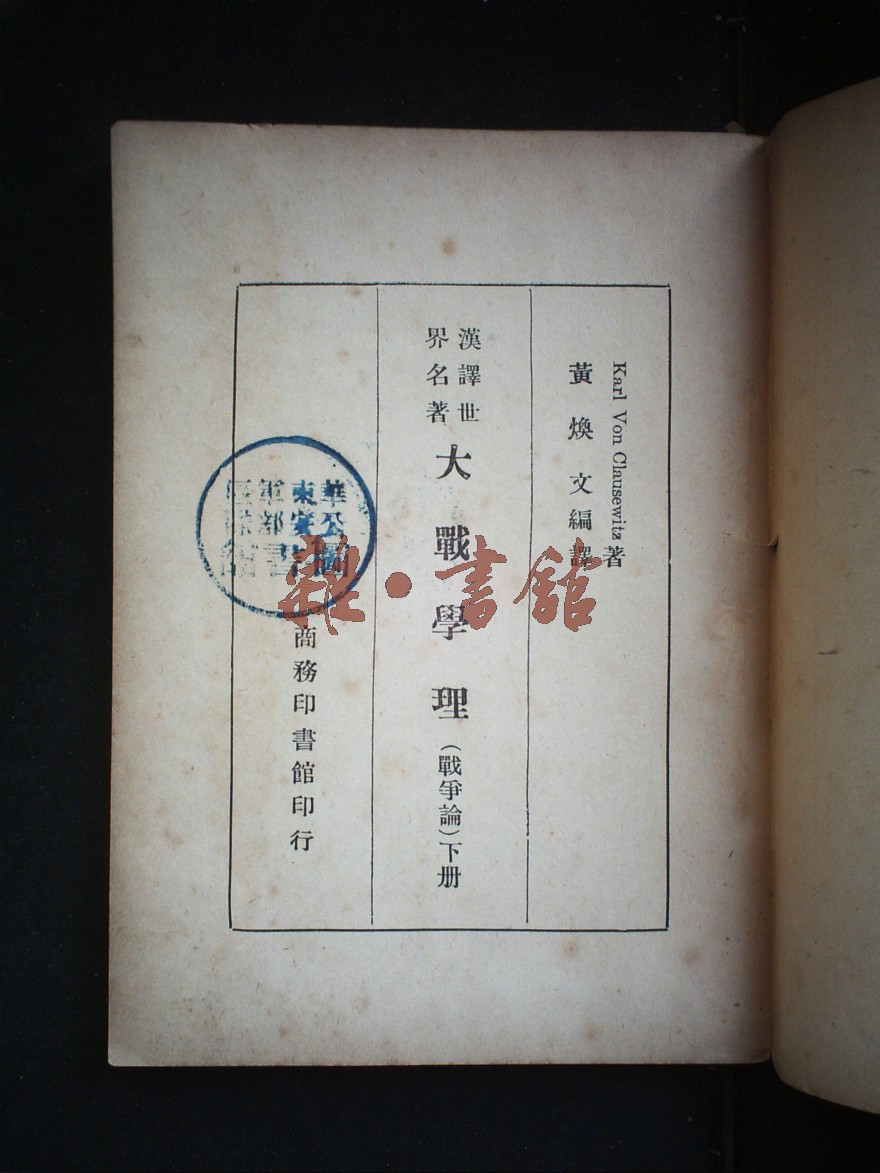 Karl Von Clausewitz 著
黃煥文編譯
漢譯世
界名著
大戰學理(戰爭論)下册
商務印書館印行
華東軍區
公安部隊
書館